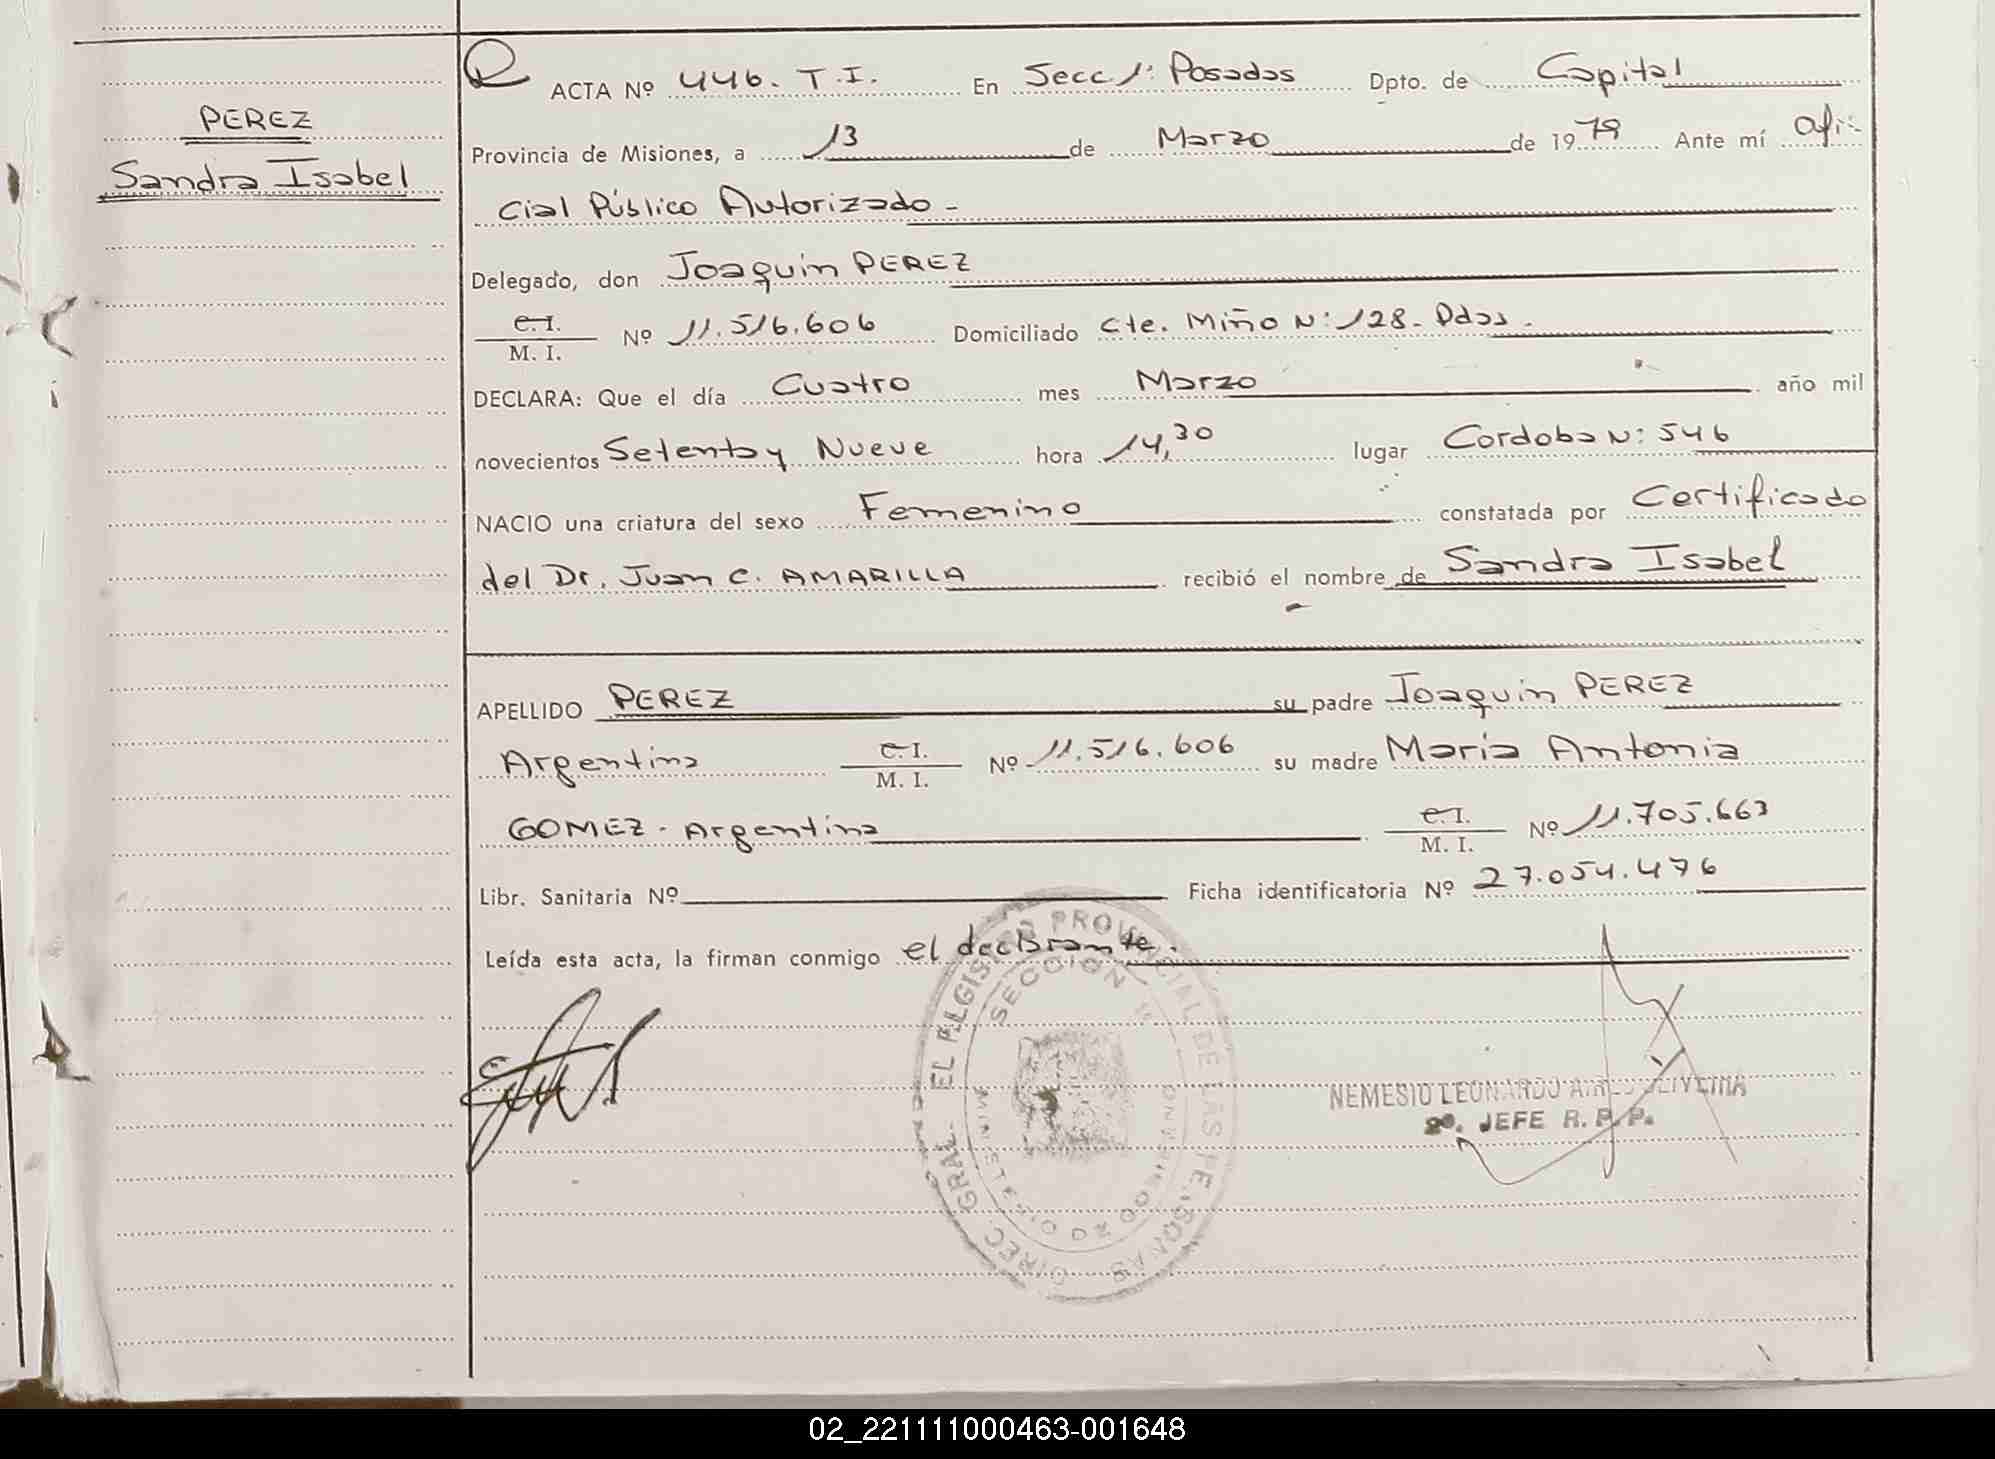 PEREZ
Sandra Isabel
ACTA Nº 446. T.I. En Secc 1ª Posadas Dpto. de Capital
Provincia de Misiones, a 13 de Marzo de 1979 Ante mí Ofi-
cial Público Autorizado -
Delegado, don Joaquin PEREZ
C.I.
M. I. Nº 11.516.606 Domiciliado Cte. Miño Nº 128- Pdas.
DECLARA: Que el día Cuatro mes Marzo año mil
novecientos Setenta y Nueve hora 14,30 lugar Cordoba Nº 546
NACIO una criatura del sexo Femenino constatada por Certificado
del Dr. Juan C. AMARILLA recibió el nombre de Sandra Isabel
APELLIDO PEREZ su padre Joaquin PEREZ
Argentina C.I.
M. I. Nº 11.516.606 su madre María Antonia
GOMEZ - Argentina C.I.
M. I. Nº 11.705.663
Libr. Sanitaria Nº Ficha identificatoria Nº 27.054.476
Leída esta acta, la firman conmigo el declarante.
DIREC. GRAL. PROVINCIAL DE LAS PERSONAS
SECCION
NEMESIO LEONARDO
2º. JEFE R. P. P.
02_221111000463-001648